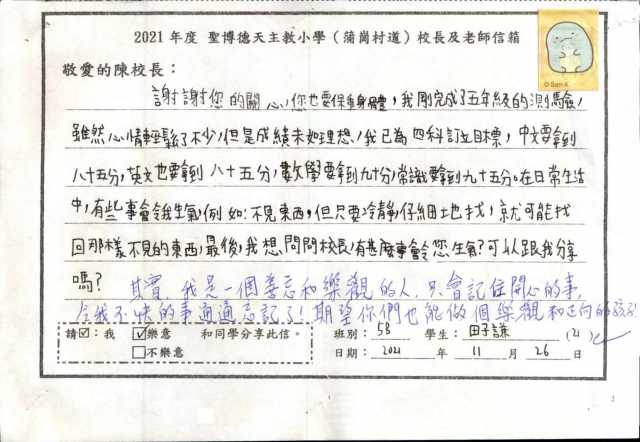 2021年度 聖博德天主教小學（蒲崗村道）校長及老師信箱
© San-X
敬愛的陳校長：
謝謝您的關心，您也要保重身體，我剛完成了五年級的測驗，
雖然心情輕鬆了不少，但是成績未如理想，我已為四科訂立目標，中文要拿到
八十五分，英文也要拿到八十五分，數學要拿到九十分，常識要拿到九十五分。在日常生活
中，有些事會令我生氣，例如：不見東西，但只要冷靜，仔細地找，就可能找
回那樣不見的東西，最後，我想問問校長，有甚麼事會令您生氣？可以跟我分享
嗎？ 其實，我是一個善忘和樂觀的人，只會記住開心的事，
令我不快的事通通忘記了！期望你們也能做個樂觀和正向的孩子！
請☑：我 ☑樂意 和同學分享此信。 班別：5B 學生：田子謙 (21)
☐不樂意 日期：2021 年 11 月 26 日